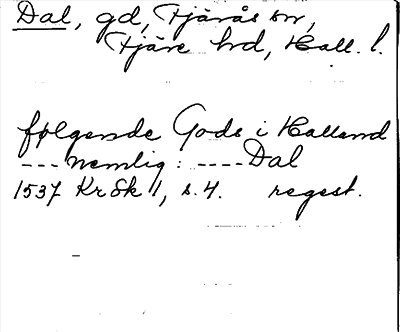 Dal, gd, Fjärås sn,
Fjäre hd, Hall. l.
følgende Gods i Halland
--- nemlig: ---- Dal
1537 KrSk 1, s. 4. regest.